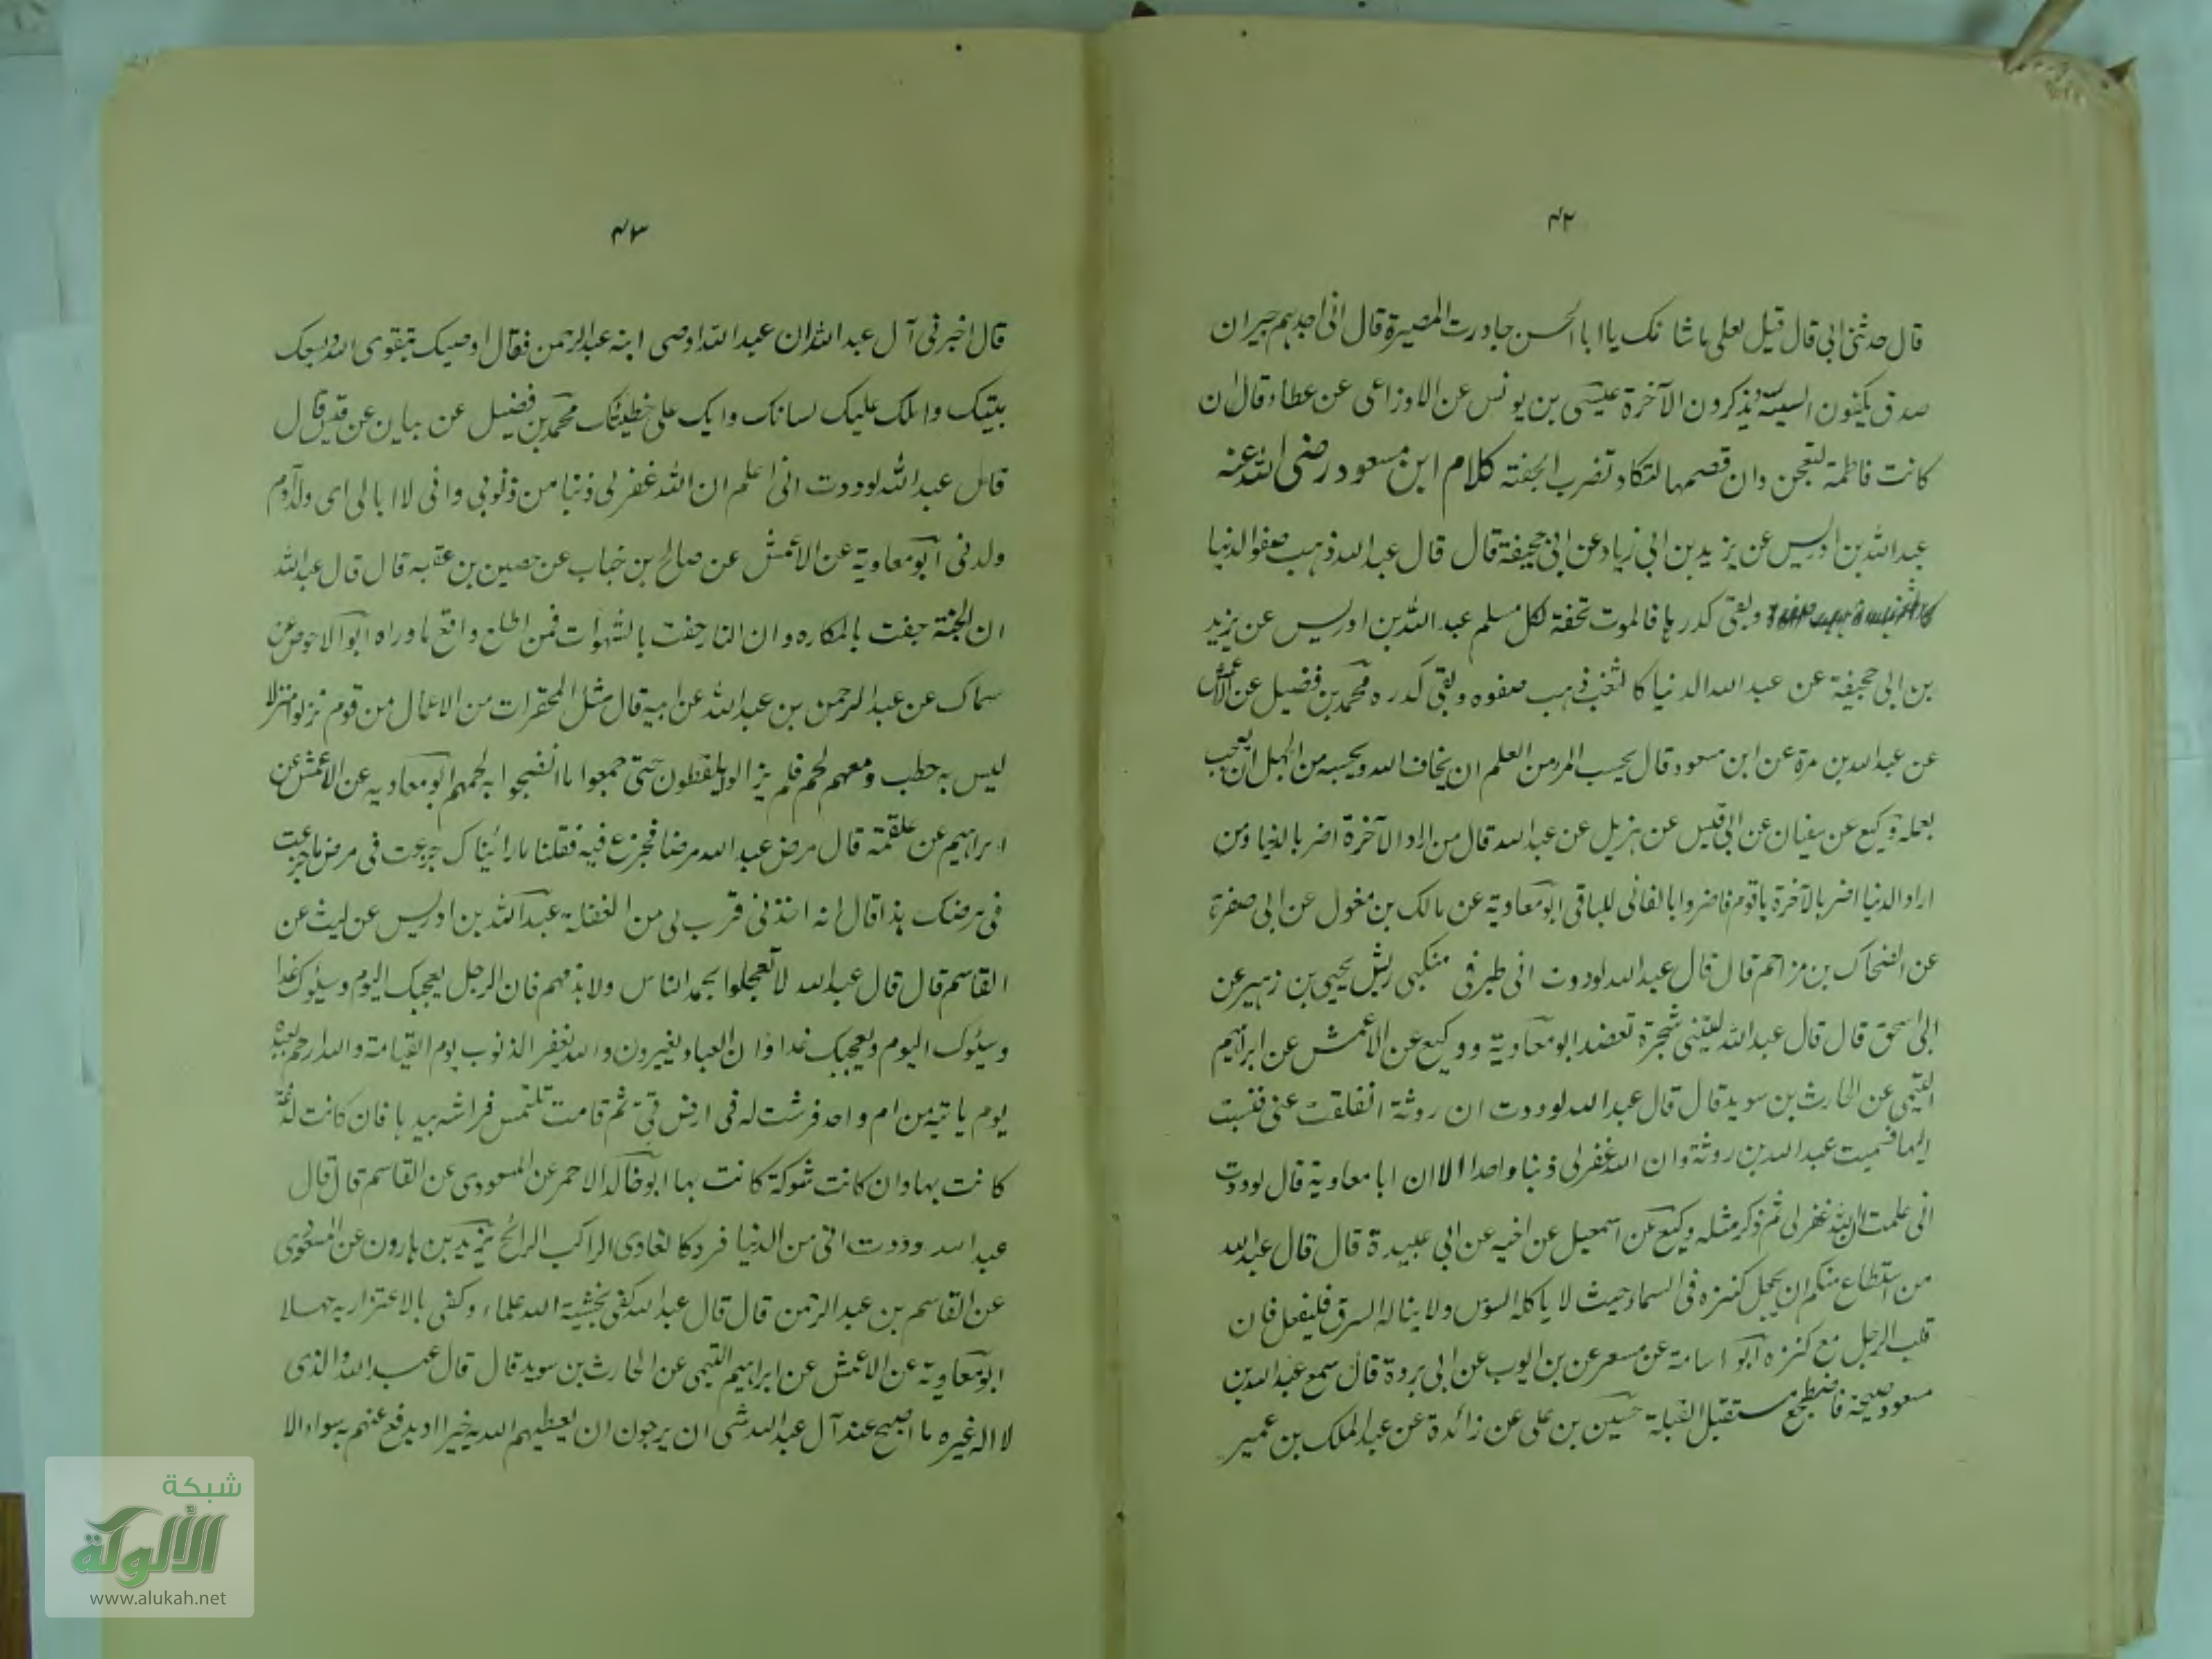 ٤٢
قال حدثنى ابى قال قيل لعلى ما شانك يا ابا الحسن جاورت المصيرة قال انى اجدهم جيران
صدق يكفون السيئة ويذكرون الآخرة عيسى بن يونس عن الاوزاعى عن عطاء قال ان
كانت فاطمة لتعجن وان قصمها لتكاد تضرب الجفنة كلام ابن مسعود رضى الله عنه
عبد الله بن ادريس عن يزيد بن ابى زياد عن ابى جحيفة قال قال عبد الله ذهب صفو الدنيا
وبقى كدرها فالموت تحفة لكل مسلم عبد الله بن ادريس عن يزيد
بن ابى جحيفة عن عبد الله الدنيا كالثغب ذهب صفوه وبقى كدره محمد بن فضيل عن الاعمش
عن عبد الله بن مرة عن ابن مسعود قال بحسب المرء من العلم ان يخاف الله وبحسبه من الجهل ان يعجب
بعمله وكيع عن سفيان عن ابى قيس عن هزيل عن عبد الله قال من اراد الآخرة اضر بالدنيا ومن
اراد الدنيا اضر بالآخرة يا قوم فاضروا بالفانى للباقى ابو معاوية عن مالك بن مغول عن ابى صفرة
عن الضحاك بن مزاحم قال قال عبد الله لوددت انى طير فى منكبى ريش يحيى بن زهير عن
ابى اسحق قال قال عبد الله ليتنى شجرة تعضد ابو معاوية ووكيع عن الاعمش عن ابراهيم
التيمى عن الحارث بن سويد قال قال عبد الله لوددت ان روثة انفلقت عنى فنسبت
اليها فسميت عبد الله بن روثة وان الله غفر لى ذنبا واحدا الا ان ابا معاوية قال لوددت
انى علمت ان الله غفر لى ثم ذكر مثله وكيع عن اسمعيل عن اخيه عن ابى عبيدة قال قال عبد الله
من استطاع منكم ان يجعل كنزه فى السماء حيث لا ياكله السوس ولا يناله السرق فليفعل فان
قلب الرجل مع كنزه ابو اسامة عن مسعر عن بن ايوب عن ابى بردة قال سمع عبد الله بن
مسعود صيحة فاضطجع مستقبل القبلة حسين بن على عن زائدة عن عبد الملك بن عمير
٤٣
قال اخبرنى آل عبد الله ان عبد الله اوصى ابنه عبد الرحمن فقال اوصيك بتقوى الله وليسعك
بيتك واملك عليك لسانك وابك على خطيئتك محمد بن فضيل عن بيان عن قيس قال
قال عبد الله لوددت انى اعلم ان الله غفر لى ذنبا من ذنوبى وانى لا ابالى اى ولد آدم
ولدنى ابو معاوية عن الاعمش عن صالح بن خباب عن حصين بن عقبه قال قال عبد الله
ان الجنة حفت بالمكاره وان النار حفت بالشهوات فمن اطلع واقع ما وراه ابو الاحوص عن
سماك عن عبد الرحمن بن عبد الله عن ابيه قال مثل المحقرات من الاعمال من قوم نزلوا منزلا
ليس به حطب ومعهم لحم فلم يزالوا يلقطون حتى جمعوا ما انضجوا به لحمهم ابو معاويه عن الاعمش عن
ابراهيم عن علقمة قال مرض عبد الله مرضا فجزع فيه فقلنا ما رائيناك جزعت فى مرض ما جزعت
فى مرضك هذا قال انه اخذنى قرب بى من الغفلة عبد الله بن ادريس عن ليث عن
القاسم قال قال عبد الله لا تعجلوا بحمد الناس ولا بذمهم فان الرجل يعجبك اليوم وسيئوك غدا
وسيئوك اليوم ويعجبك غدا وان العباد يغيرون والله يغفر الذنوب يوم القيامة والله ارحم بعبده
يوم ياتيه من ام واحد فرشت له فى ارض قى ثم قامت تلتمس فراشه بيدها فان كانت لدغة
كانت بها وان كانت شوكة كانت بها ابو خالد الاحمر عن المسعودى عن القاسم قال قال
عبد الله وددت انى من الدنيا فرد كالغادى الراكب الرائح يزيد بن هارون عن المسعودى
عن القاسم بن عبد الرحمن قال قال عبد الله كفى بخشية الله علما وكفى بالاغترار به جهلا
ابو معاوية عن الاعمش عن ابراهيم التيمى عن الحارث بن سويد قال قال عبد الله والذى
لا اله غيره ما اصبح عند آل عبد الله شى ان يرجون ان يعطيهم الله به خيرا او يدفع عنهم به سواء الا
شبكة
الألوكة
www.alukah.net